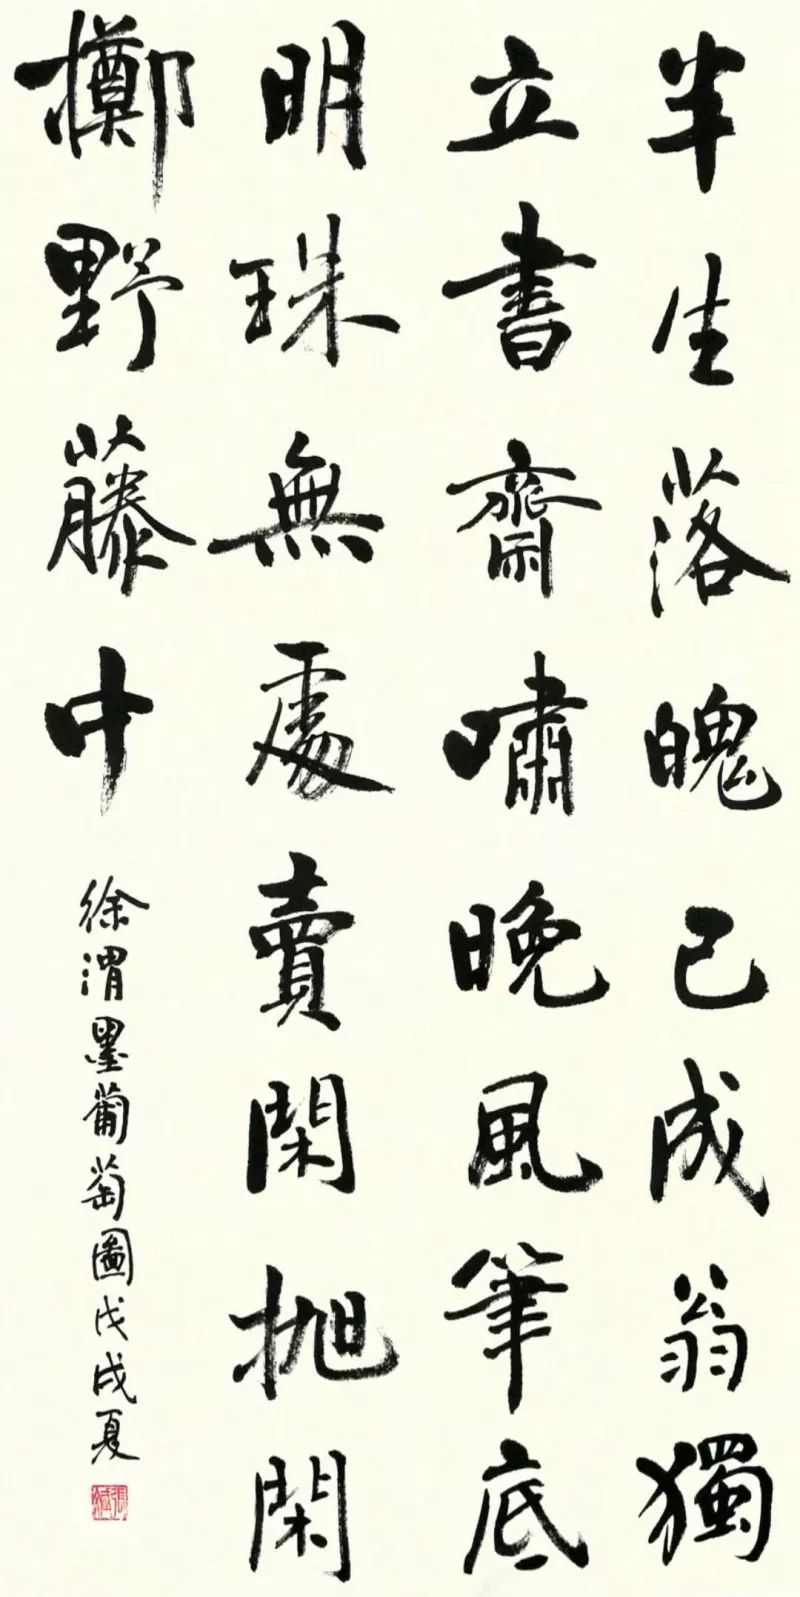 半生落魄已成翁獨
立書齋嘯晚風筆底
明珠無處賣閑拋閑
擲野藤中
徐渭墨葡萄圖戊戌夏